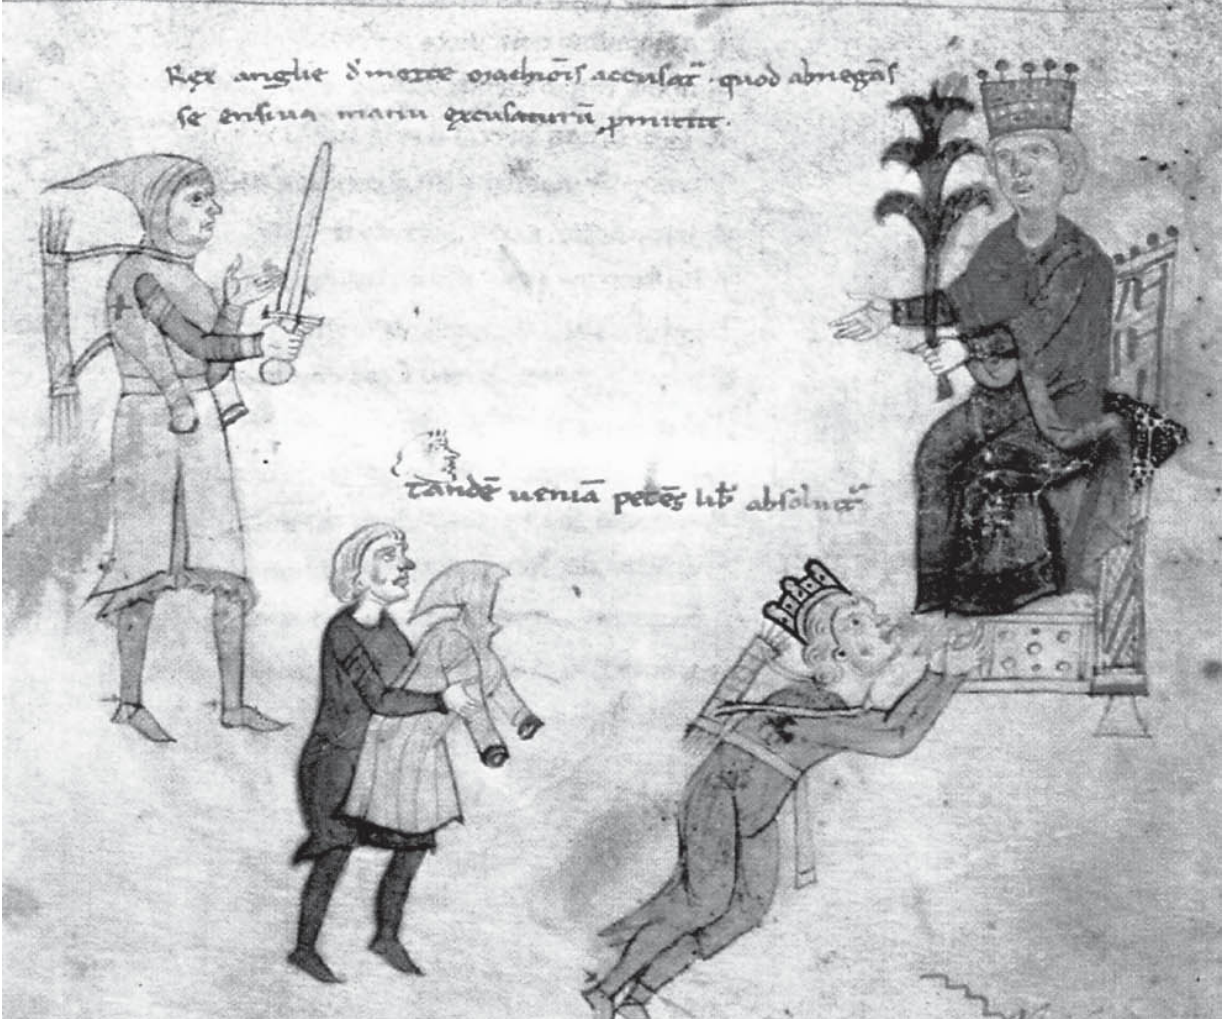 Rex anglie d' morte marchiōis accusat̄. quod abnegās
se ensiua manu excusaturū ꝓmittit.
tandē ueniā petēs lib̄ absoluit᷑